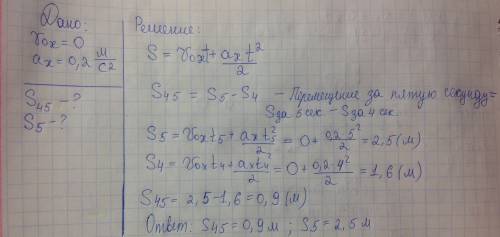 Дано:
v₀ₓ = 0
aₓ = 0,2 м/с²
S₄₅ – ?
S₅ – ?
Решение:
S = v₀ₓt + aₓt²/2
S₄₅ = S₅ - S₄ – Перемещение за пятую секунду =
S за 5 сек. – S за 4 сек.
S₅ = v₀ₓt₅ + aₓt₅²/2 = 0 + 0,2·5²/2 = 2,5 (м)
S₄ = v₀ₓt₄ + aₓt₄²/2 = 0 + 0,2·4²/2 = 1,6 (м)
S₄₅ = 2,5 - 1,6 = 0,9 (м)
Ответ: S₄₅ = 0,9 м ; S₅ = 2,5 м